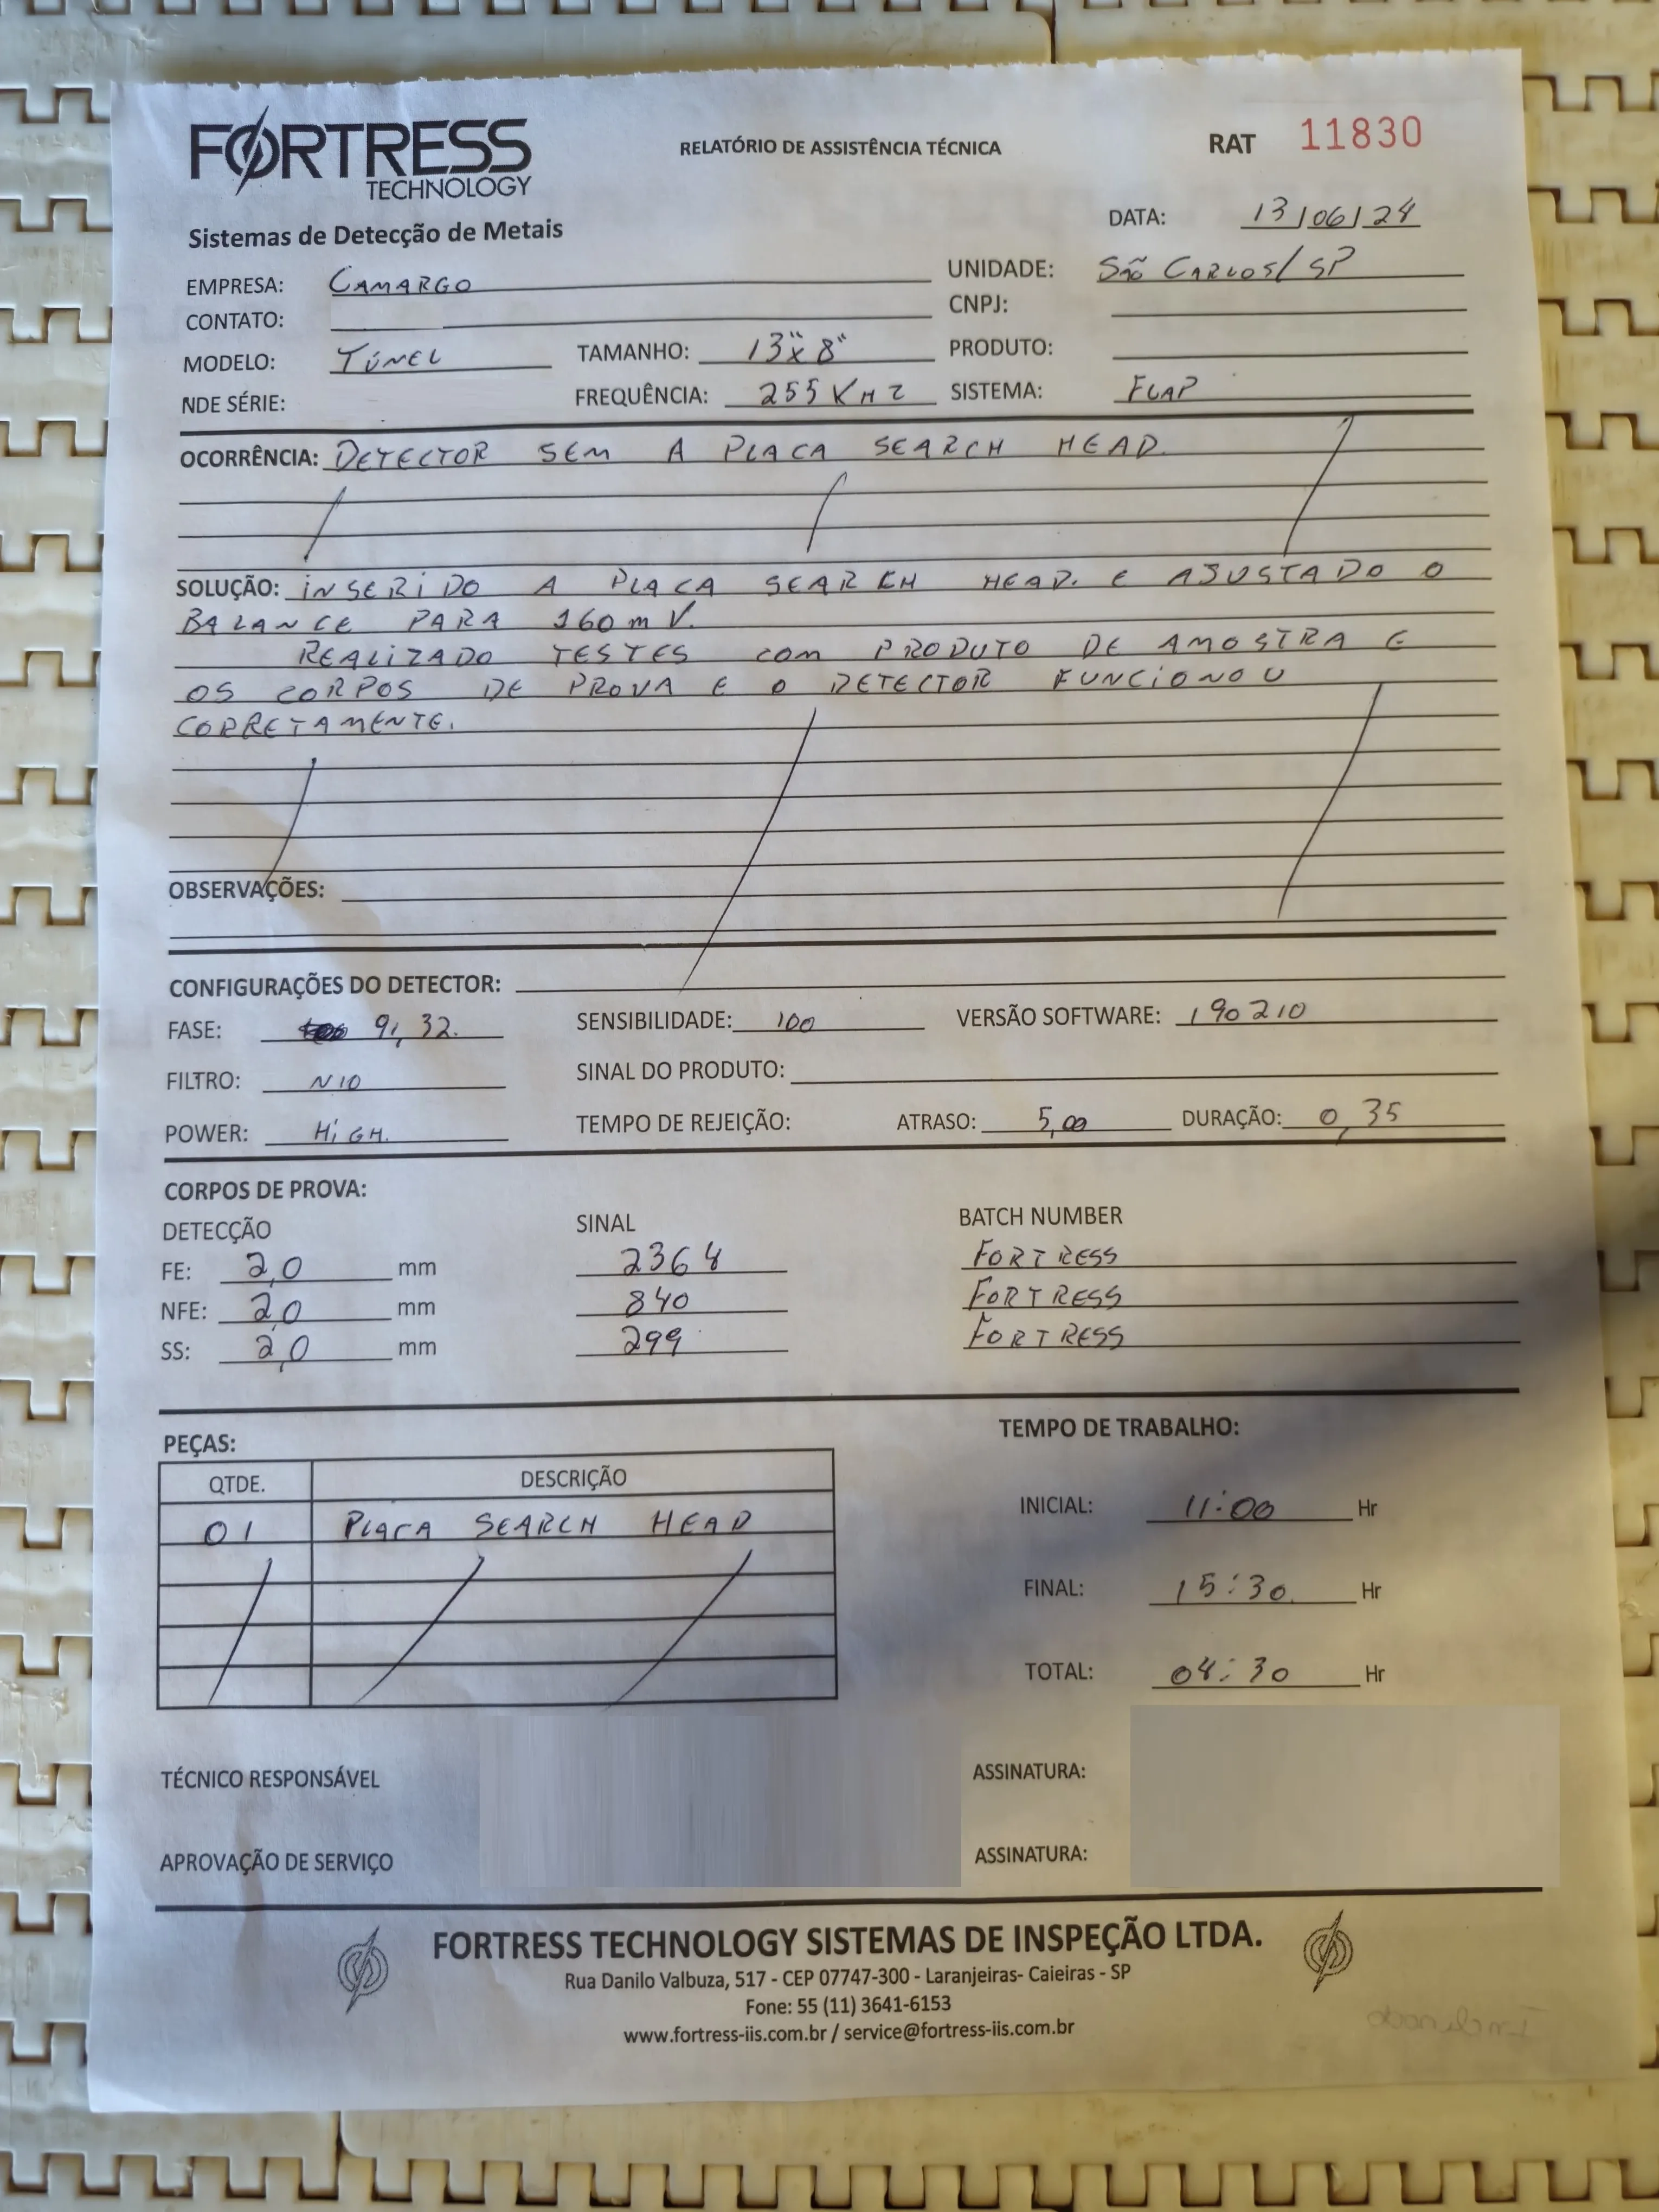 FORTRESS
TECHNOLOGY
RELATÓRIO DE ASSISTÊNCIA TÉCNICA
RAT 11830
Sistemas de Detecção de Metais
DATA: 13/06/24
EMPRESA: CAMARGO
UNIDADE: SÃO CARLOS/SP
CONTATO:
CNPJ:
MODELO: TÚNEL TAMANHO: 13"x8" PRODUTO:
NDE SÉRIE: FREQUÊNCIA: 255 KHZ SISTEMA: FLAP
OCORRÊNCIA: DETECTOR SEM A PLACA SEARCH HEAD
SOLUÇÃO: INSERIDO A PLACA SEARCH HEAD. E AJUSTADO O
BALANCE PARA 160mV.
REALIZADO TESTES COM PRODUTO DE AMOSTRA E
OS CORPOS DE PROVA E O DETECTOR FUNCIONOU
CORRETAMENTE.
OBSERVAÇÕES:
CONFIGURAÇÕES DO DETECTOR:
FASE: 91,32. SENSIBILIDADE: 100 VERSÃO SOFTWARE: 190210
FILTRO: N10 SINAL DO PRODUTO:
POWER: HIGH. TEMPO DE REJEIÇÃO: ATRASO: 5,00 DURAÇÃO: 0,35
CORPOS DE PROVA:
DETECÇÃO SINAL BATCH NUMBER
FE: 2,0 mm 2364 FORTRESS
NFE: 2,0 mm 840 FORTRESS
SS: 2,0 mm 299 FORTRESS
PEÇAS:
TEMPO DE TRABALHO:
QTDE. DESCRIÇÃO
01 PLACA SEARCH HEAD
INICIAL: 11:00 Hr
FINAL: 15:30 Hr
TOTAL: 04:30 Hr
TÉCNICO RESPONSÁVEL ASSINATURA:
APROVAÇÃO DE SERVIÇO ASSINATURA:
FORTRESS TECHNOLOGY SISTEMAS DE INSPEÇÃO LTDA.
Rua Danilo Valbuza, 517 - CEP 07747-300 - Laranjeiras- Caieiras - SP
Fone: 55 (11) 3641-6153
www.fortress-iis.com.br / service@fortress-iis.com.br